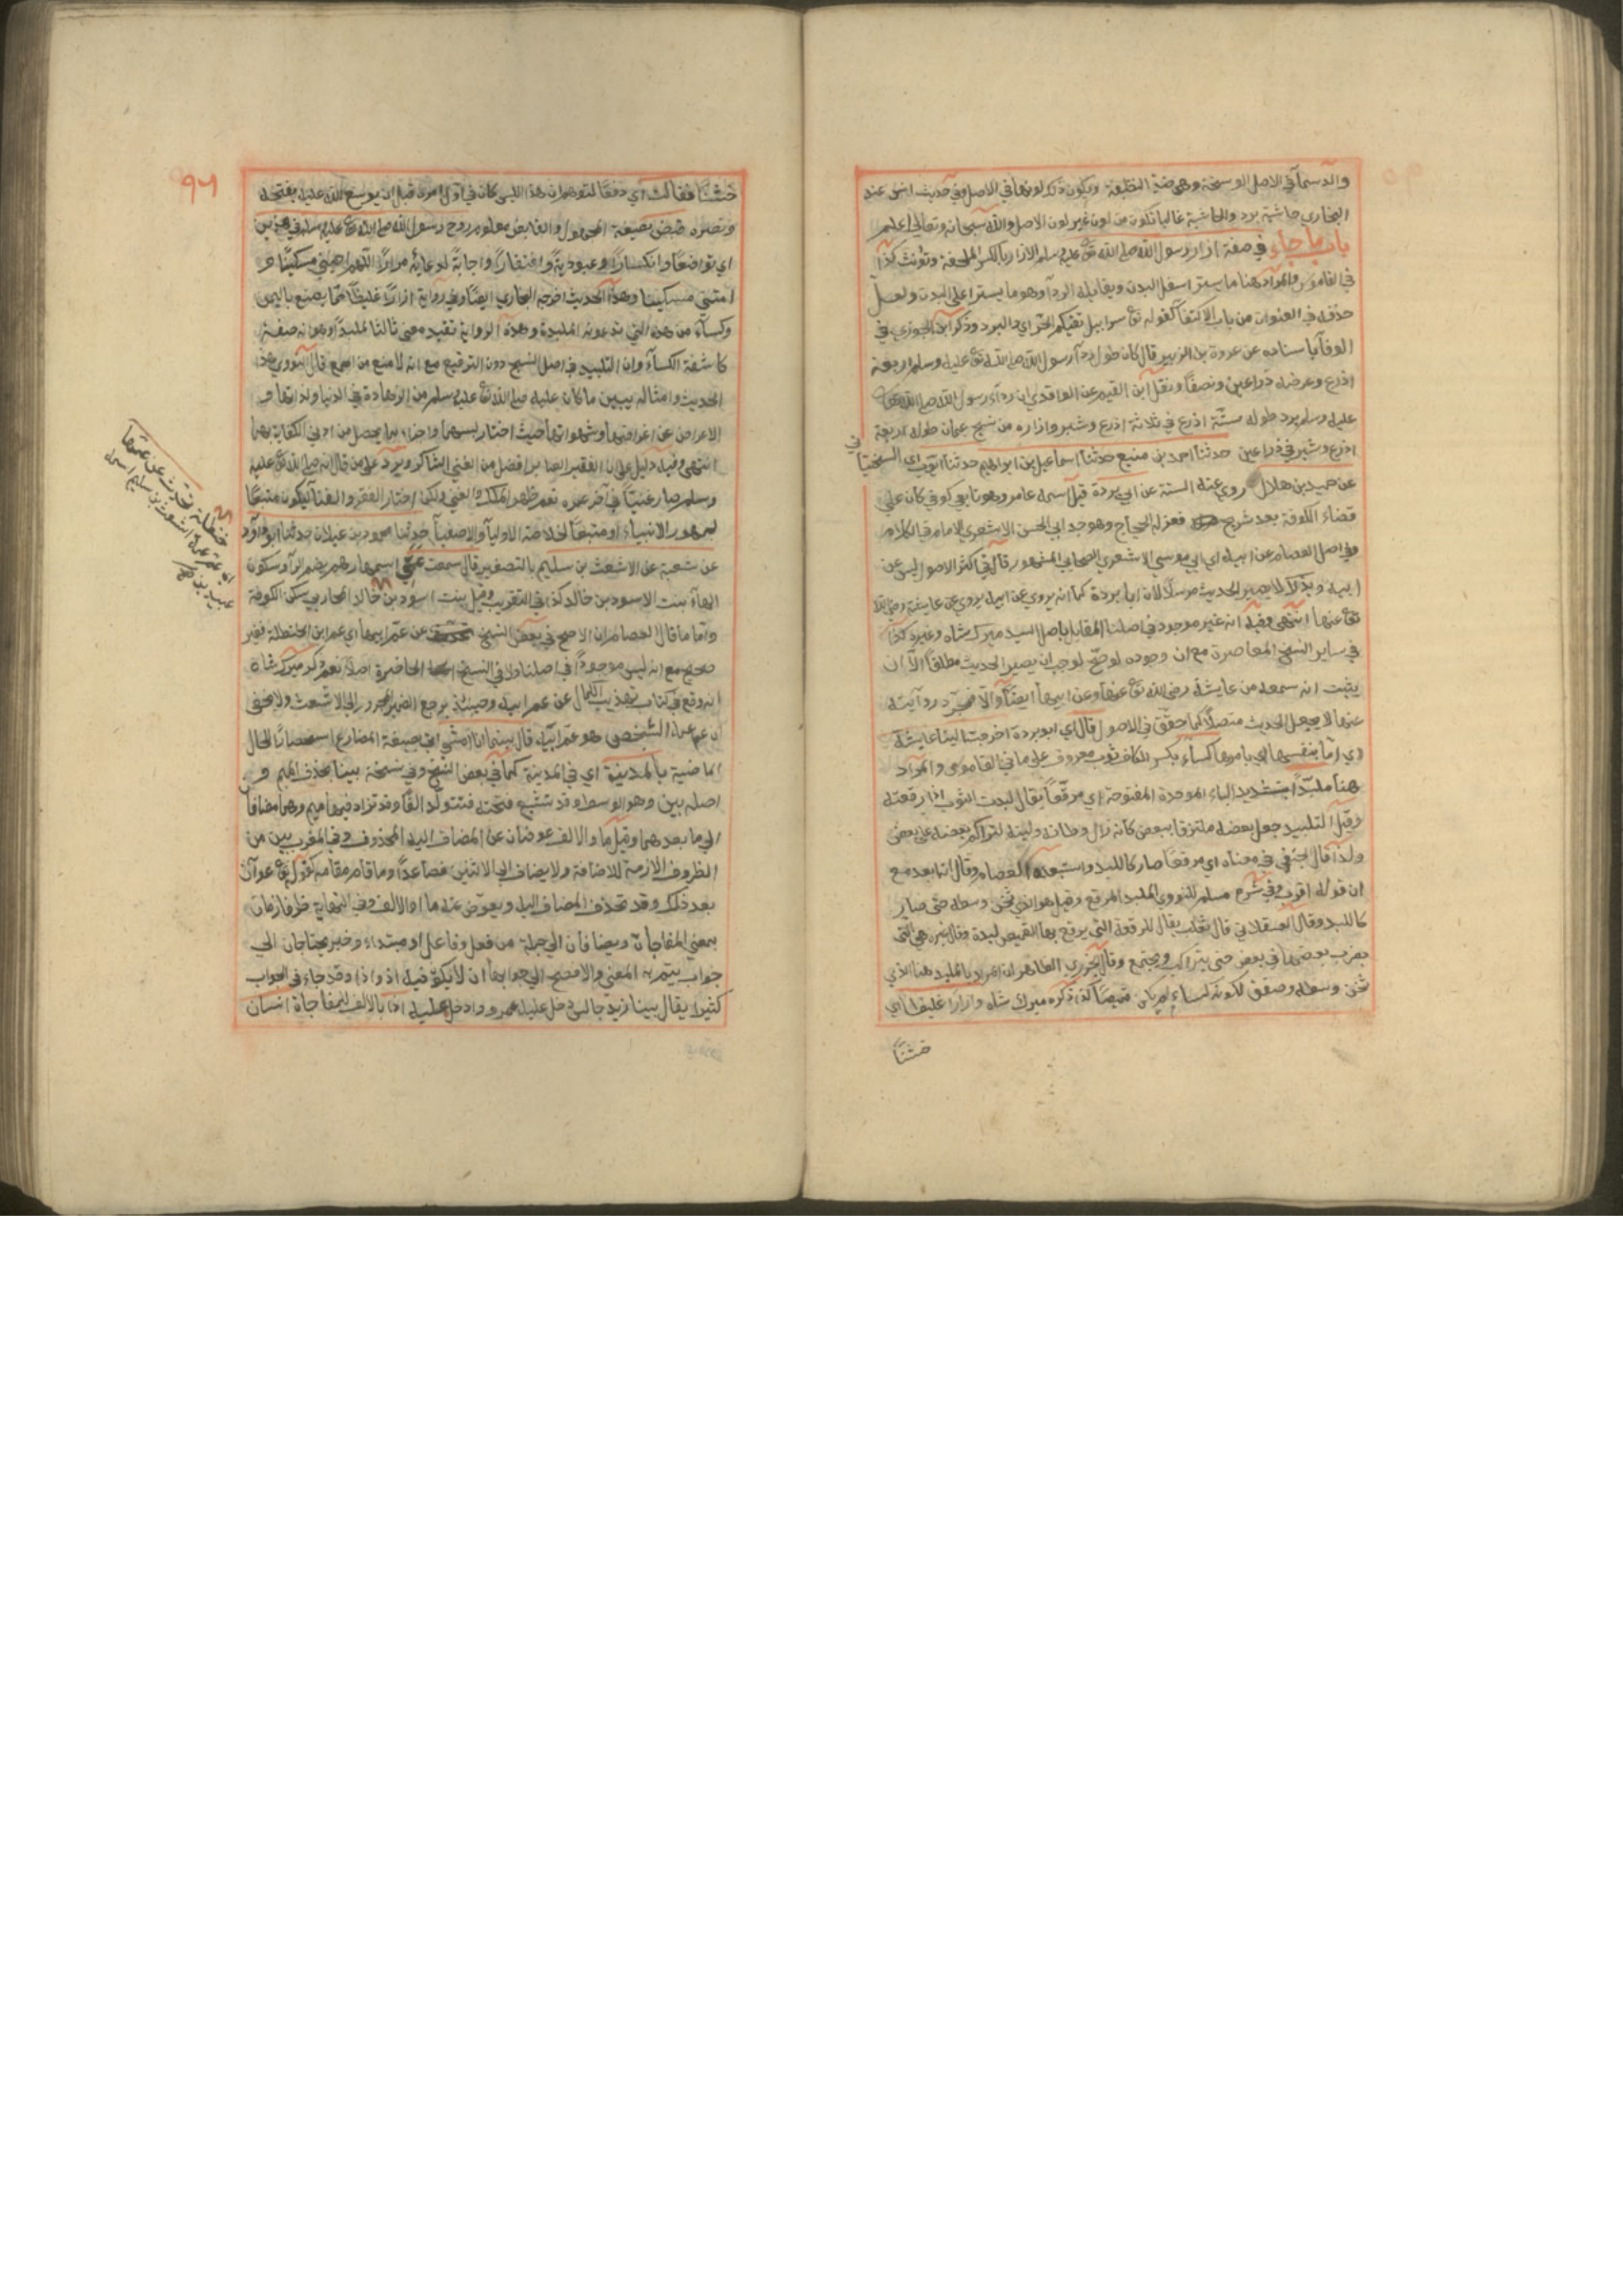 والدسماء في الاصل الوسخة وهي ضد النظيفة ويكون ذلك لونها في الاصل وفي حديث انس عند
البخاري حاشية برد والحاشية غالبا تكون من لون غير لون الاصل والله سبحانه وتعالى اعلم
باب ما جاء في صفة ازار رسول الله صلى الله تع عليه وسلم الازار بالكسر الملحفة وتؤنث كذا
في القاموس والمراد هنا ما يستر اسفل البدن ويقابله الرداء وهو ما يستر اعلى البدن ولعل
حذفه في العنوان من باب الاكتفاء كقوله تع سرابيل تقيكم الحر اي والبرد وذكر ابن الجوزي في
الوفا باسناده عن عروة بن الزبير قال كان طول رداء رسول الله صلى الله تع عليه وسلم اربعة
اذرع وعرضه ذراعين ونصفا ونقل ابن القيم عن الواقدي ان رداء رسول الله صلى الله تع
عليه وسلم برد طوله ستة اذرع في ثلاثة اذرع وشبر وازاره من نسج عمان طوله اربعة
اذرع وشبر في ذراعين حدثنا احمد بن منيع حدثنا اسماعيل بن ابراهيم حدثنا ايوب اي السختياني
عن حميد بن هلال روى عنه الستة عن ابي بردة قيل اسمه عامر وهو تابعي كوفي كان على
قضاء الكوفة بعد شريح فعزله الحجاج وهو جد ابي الحسن الاشعري الامام في الكلام
وفي اصل العصام عن ابيه اي ابي موسى الاشعري الصحابي المشهور قال في اكثر الاصول ليس عن
ابيه وبذلك لا يصير الحديث مرسلا لان ابا بردة كما انه يروي عن ابيه يروي عن عايشة رضي الله
تع عنها انتهى وفيه انه غير موجود في اصلنا المقابل باصل السيد ميرك شاه وغيره كذا
في ساير النسخ المعاصرة مع ان وجوده لو صح لوجب ان يصير الحديث مطلقا الا ان
يثبت انه سمعه من عايشة رضي الله تع عنها وعن ابيها ايضا والا فمجرد روايته
عنها لا يجعل الحديث متصلا كما حقق في الاصول قال اي ابو بردة اخرجت الينا عايشة
اي اما بنفسها او بامرها كساء بكسر الكاف ثوب معروف على ما في القاموس والمراد
هنا ملبدا بتشديد الباء الموحدة المفتوحة اي مرقعا يقال لبدت الثوب اذا رقعته
وقيل التلبيد جعل بعضه ملتزقا ببعض كانه زال وطائه ولينه لتراكم بعضه على بعض
ولذا قال الحنفي في معناه اي مرقعا صار كاللبد واستبعده العصام وقال انه ابعد مع
ان قوله اقرب وفي شرح مسلم للنووي الملبد المرقع وقيل هو الذي ثخن وسطه حتى صار
كاللبد وقال العسقلاني قال ثعلب يقال للرقعة التي يرقع بها القميص لبدة وقال غيره هي التي
يضرب بعضها في بعض حتى يتراكب ويجتمع وقال الجزري الظاهر ان المراد بالملبد هنا الذي
ثخن وسطه وصفق لكونه كساء لم يكن قميصا كذا ذكره ميرك شاه وازارا غليظا اي
خشنا
٩٦
خشنا فقالت اي دفعا لتوهم ان هذا اللبس كان في اول امره قبل ان يوسع الله عليه بفتحه
ونصره قبض بصيغة المجهول والقابض معلوم روح رسول الله صلى الله تع عليه وسلم في هذين
اي تواضعا وانكسارا وعبودية وافتقارا واجابة لدعائه مرارا اللهم احيني مسكينا و
امتني مسكينا وهذا الحديث اخرجه البخاري ايضا وفي رواية ازارا غليظا مما يصنع باليمن
وكساء من هذه التي تدعونه الملبدة وهذه الرواية تفيد معنى ثالثا للملبد وهو انه صفة
كاشفة الكساء وان التلبيد في اصل النسج دون الترقيع مع انه لا منع من الجمع قال النووي هذا
الحديث وامثاله يبين ما كان عليه صلى الله تع عليه وسلم من الزهادة في الدنيا ولذاتها و
الاعراض عن اغراضها وشهواتها حيث اختار لبسهما واجزاء بما يحصل من ادنى الكفاية بهما
انتهى وفيه دليل على ان الفقير الصابر افضل من الغني الشاكر ويرد على من قال انه صلى الله تع عليه
وسلم صار غنيا في آخر عمره نعم ظهر الملك والغنى ولكن اختار الفقر والفنا ليكون متبعا
لجمهور الانبياء او متبعا لخلاصة الاوليا والاصفيا حدثنا محمود بن غيلان حدثنا ابو داود
عن شعبة عن الاشعث بن سليم بالتصغير قال سمعت عمتي اسمها رهم بضم الراء وسكون
الهاء بنت الاسود بن خالد كذا في التقريب وقيل بنت اسود بن خالد المحاربي سكن الكوفة
واما ما قال العصام ان الاصح في بعض النسخ عن عم ابيها اي عم ابن الحنظلة فغير
صحيح مع انه ليس موجودا في اصلنا ولا في النسخ الحاضرة اصلا نعم ذكر ميرك شاه
انه وقع في كتاب تهذيب الكمال عن عم ابيه وحينئذ يرجع الضمير المجرور الى الاشعث ولا يخفى
ان عم عمة الشخص هو عم ابيه قال بينما انا امشي اتى بصيغة المضارع استحضارا للحال
الماضية بالمدينة اي في المدينة كما في بعض النسخ وفي نسخة بينا بحذف الميم و
اصله بين وهو الوسط وقد تشبع فتحته فتتولد الفا وقد تزاد فيها ميم وهما مضافا
الى ما بعدهما وقيل ما والالف عوضان عن المضاف اليه المحذوف وفي المغرب بين من
الظروف اللازمة للاضافة ولا يضاف الا الى الاثنين فصاعدا وما قام مقامه كقوله تع عوان
بعد ذلك وقد تحذف المضاف اليه ويعوض عنه ما او الالف وفي النهاية ظرفا زمان
بمعنى المفاجاة ويضافان الى جملة من فعل وفاعل او مبتداء وخبر يحتاجان الى
جواب يتم به المعنى والافصح الى جوابها ان لا يكون فيه اذ واذا وقد جاء في الجواب
كثيرا يقال بينا زيد جالس دخل عليه عمرو واذ دخل عليه اذا بالالف للمفاجاة انسان